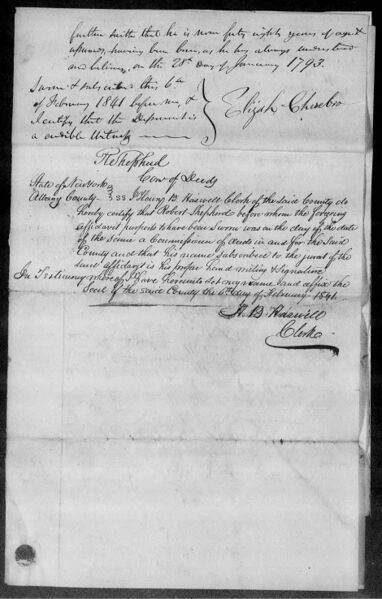 further saith that he is now forty eights years of age &
upwards, having been born, as he has always understood
and believes, on the 28th day of January 1793.
Sworn & subscribed this 6th
of February 1841 before me, &
I certify that the Deponent is
a credible Witness
Elijah Chesebro
R Shepherd
Com of Deeds
State of New York
Albany County } SS I Henry B. Haswell Clerk of the said County do
hereby certify that Robert Shepherd before whom the foregoing
affidavit purports to have been sworn was on the day of the date
of the same a Commissioner of deeds in and for the said
County and that his name subscribed to the jurat of the
said affidavit is his proper hand writing & signature,
In Testimony whereof I have hereunto set my name and affix the
Seal of the said County the 6th day of February 1841.
H. B. Haswell
Clerk